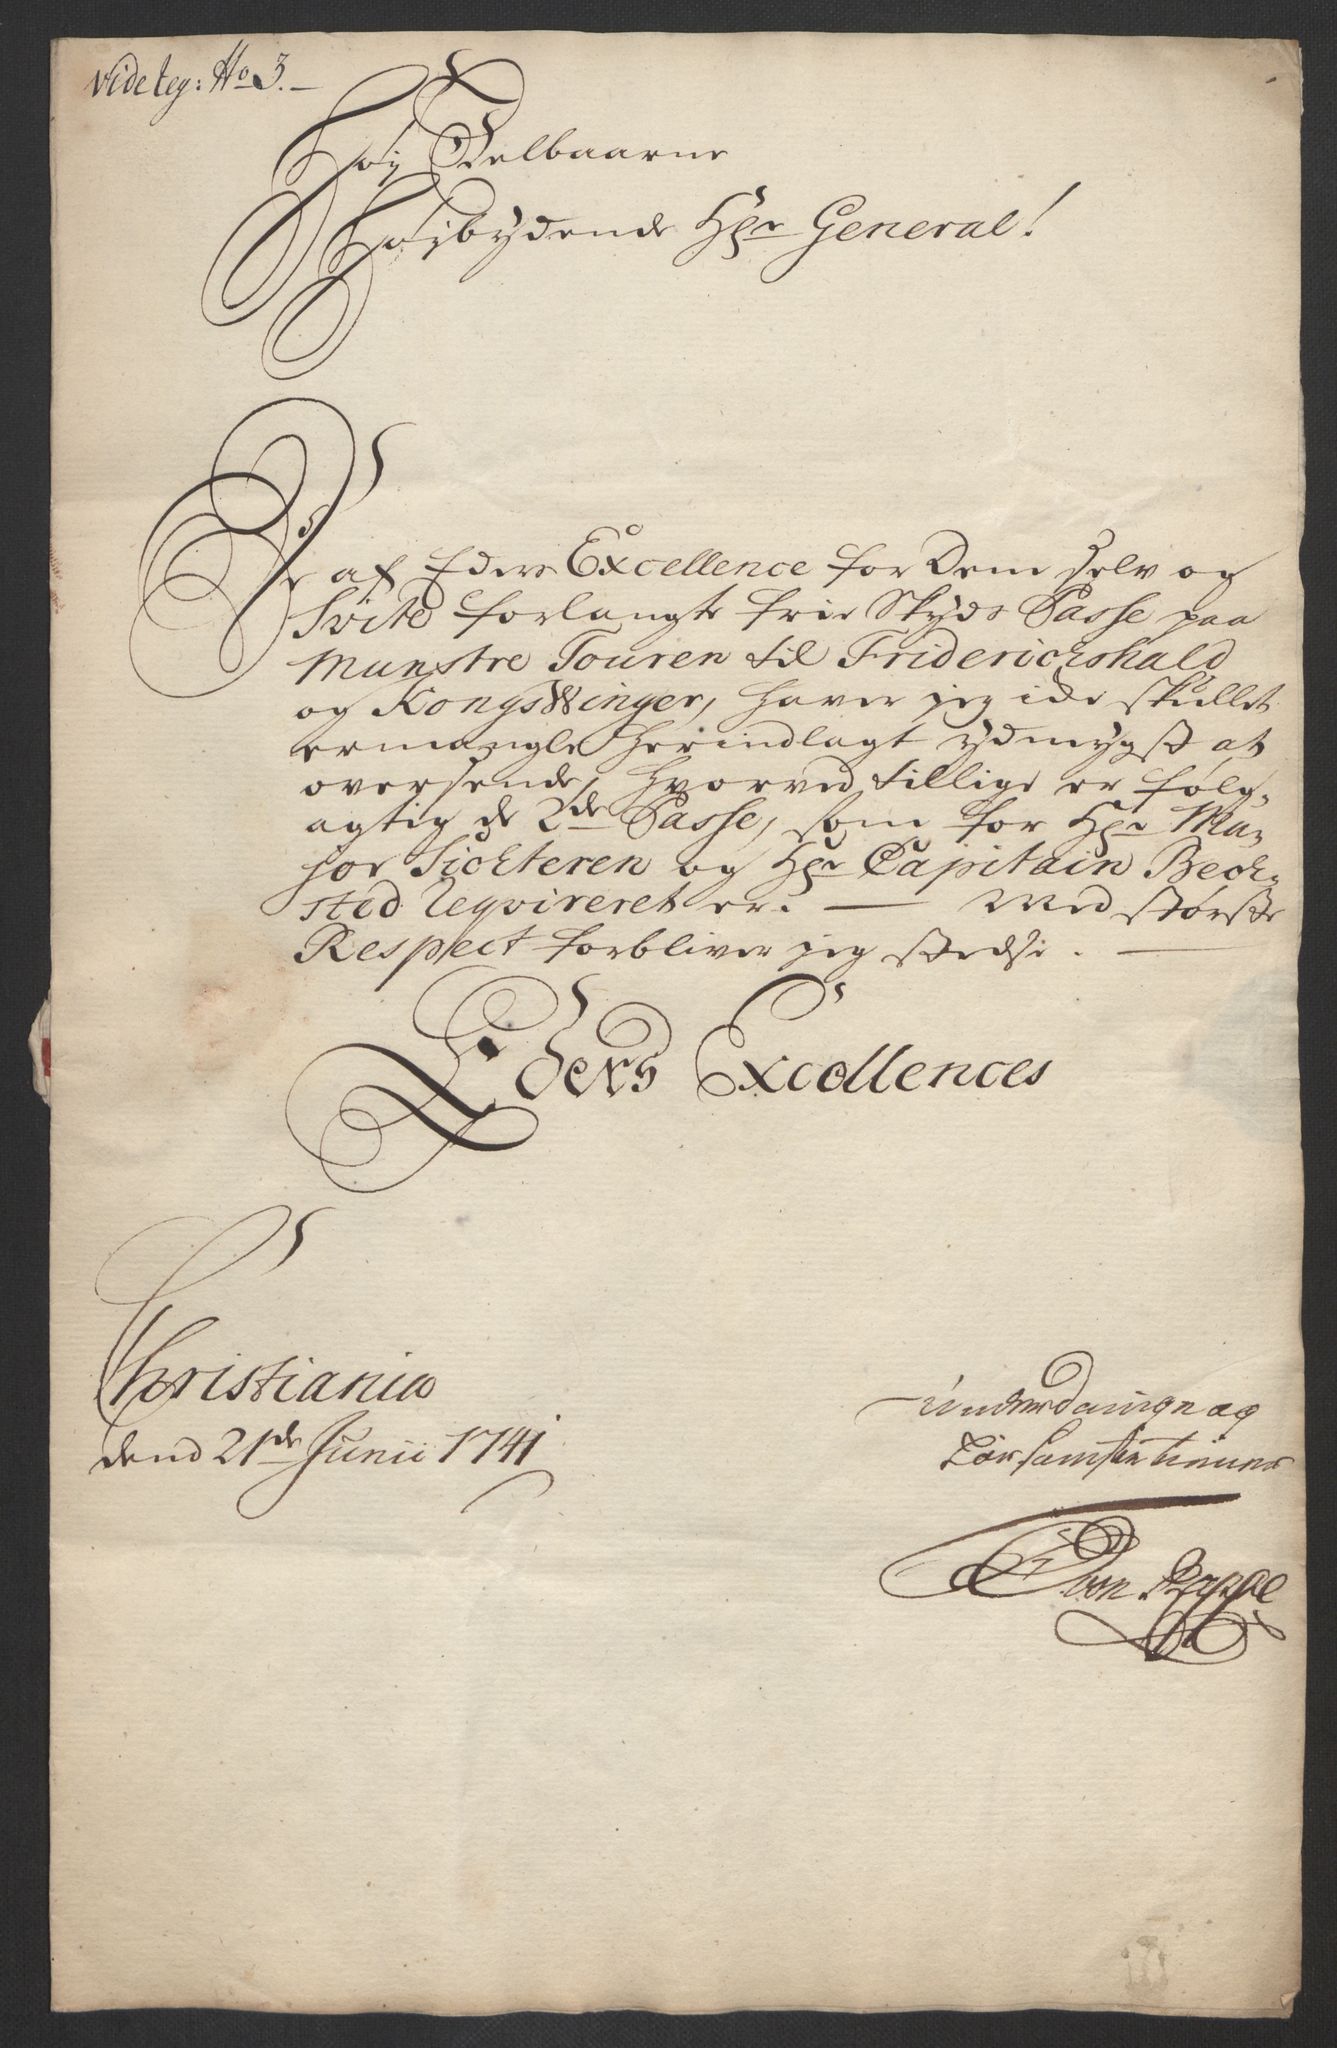 Vide leg: No 3.
Høy Edelbaarne
Høybydende Hr General!
De af Eders Excellence for Dem selv og
Svite forlangte frie Skyds Passe paa
Munstre Touren til Friderichshald
og KongsWinger, haver jeg icke skullet
ermangle herindlagt ydmygst at
oversende, hvorved tillige er følg-
agtig de 2de Passe, som for Hr Ma-
jor Sichteren og Hr Capitain Bech-
sted reqvireret er. — Med største
Respect forbliver jeg stedse. —
Eders Excellences
Christiania
dend 21de Junii 1741
underdanige og
hørsamste tienner
von Rappe